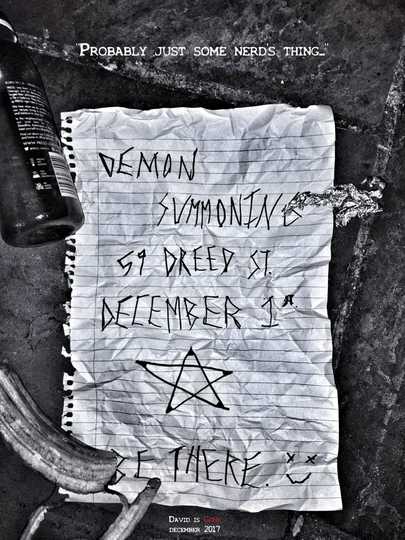 "Probably just some nerd's thing..."
DEMON
SUMMONING
59 DREED ST.
DECEMBER 1st
BE THERE.
David is Gone
december 2017